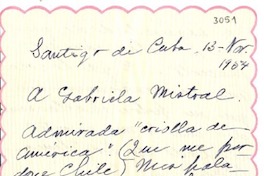 3051
Santigo de Cuba, 13-Nov.
1954
A Gabriela Mistral.
Admirada "criolla de
América" (Que me per-
done Chile) Mis pala-